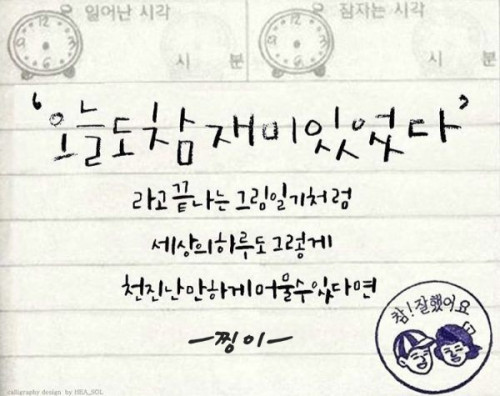 일어난 시각 잠자는 시각
시 분 시 분
'오늘도 참 재미있었다'
라고 끝나는 그림일기처럼
세상의 하루도 그렇게
천진난만하게 머물수있다면
-찡이-
참! 잘했어요
calligraphy design by HEA_SOL